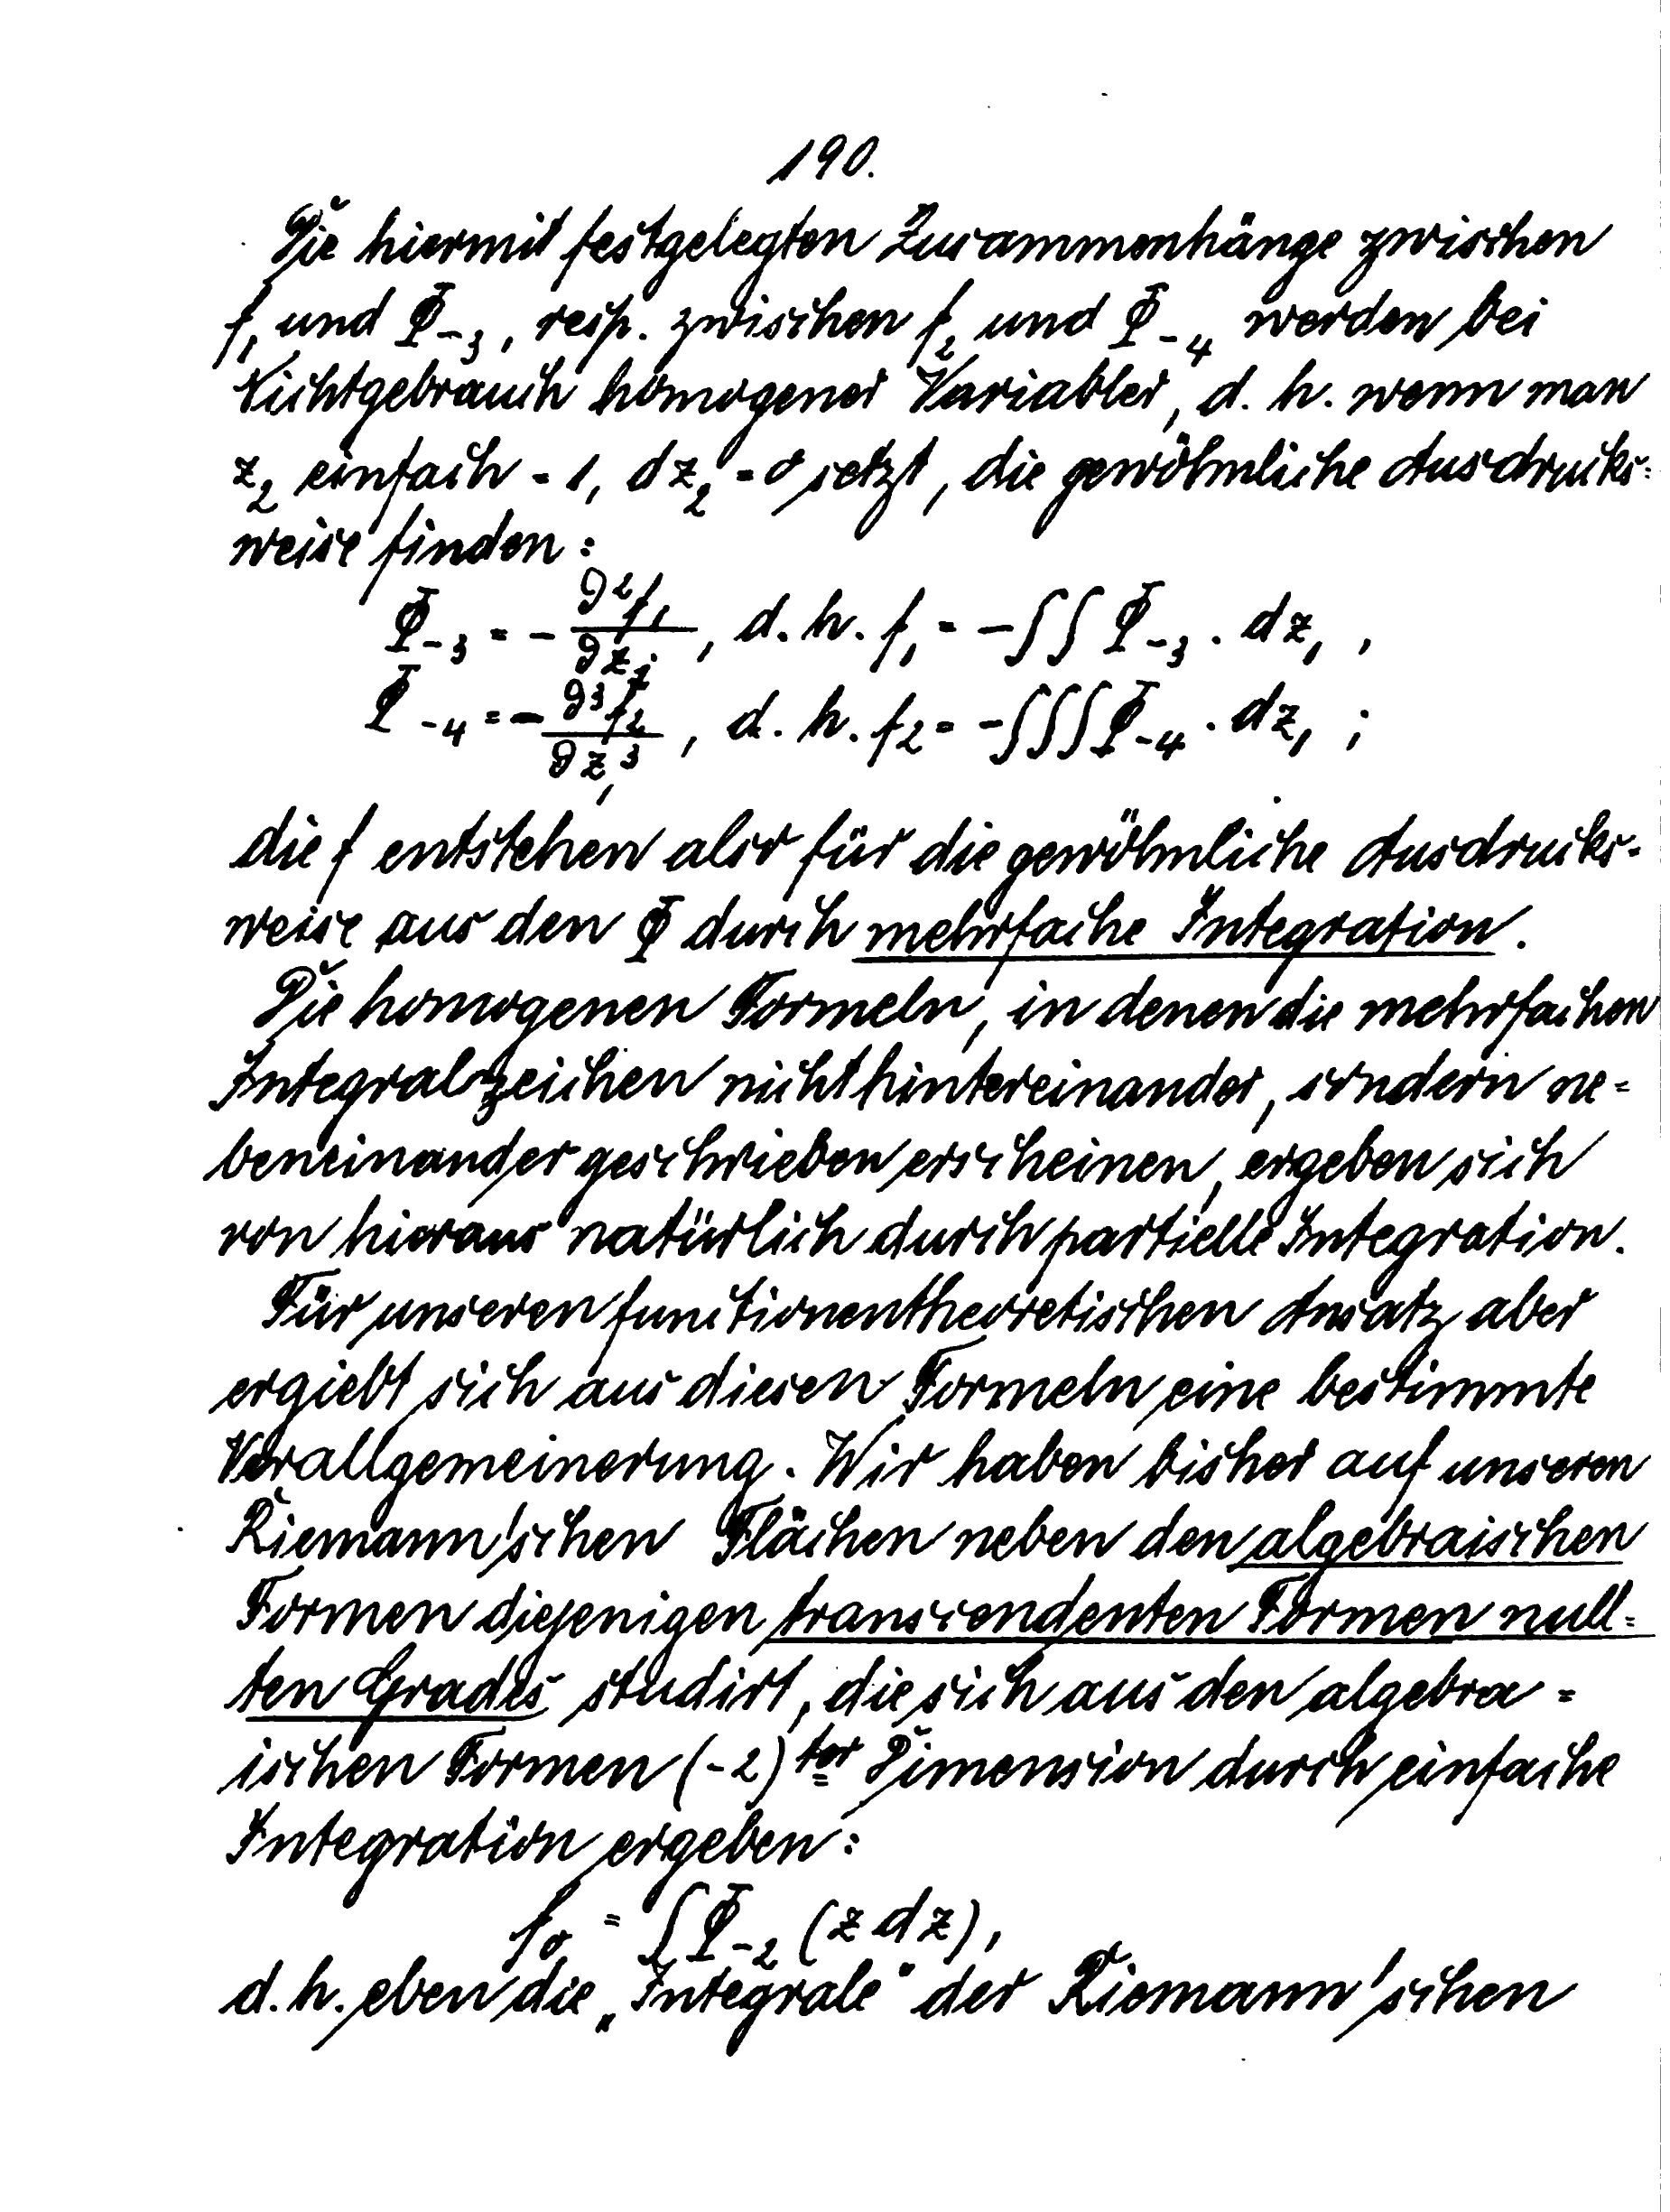 190.
Die hiermit festgelegten Zusammenhänge zwischen
f₁ und Φ₋₃, resp. zwischen f₂ und Φ₋₄ werden bei
Nichtgebrauch homogener Variabler, d. h. wenn man
z₂ einfach = 1, dz₂ = 0 setzt, die gewöhnliche Ausdrucks=
weise finden:
Φ₋₃ = - ∂²f₁/∂z₁², d. h. f₁ = -∫∫ Φ₋₃ . dz₁ ,
Φ₋₄ = - ∂³f₂/∂z₁³, d. h. f₂ = -∫∫∫ Φ₋₄ . dz₁ ;
die f entstehen also für die gewöhnliche Ausdrucks-
weise aus den Φ durch mehrfache Integration.
Die homogenen Formeln, in denen die mehrfachen
Integralzeichen nicht hintereinander, sondern ne=
beneinander geschrieben erscheinen, ergeben sich
von hieraus natürlich durch partielle Integration.
Für unseren functionentheoretischen Ansatz aber
ergiebt sich aus diesen Formeln eine bestimmte
Verallgemeinerung. Wir haben bisher auf unseren
Riemann'schen Flächen neben den algebraischen
Formen diejenigen transcendenten Formen null=
ten Grades studirt, die sich aus den algebra=
ischen Formen (-2)ter Dimension durch einfache
Integration ergeben:
f₀ = ∫ Φ₋₂ (z dz),
d. h. eben die „Integrale“ der Riemann'schen